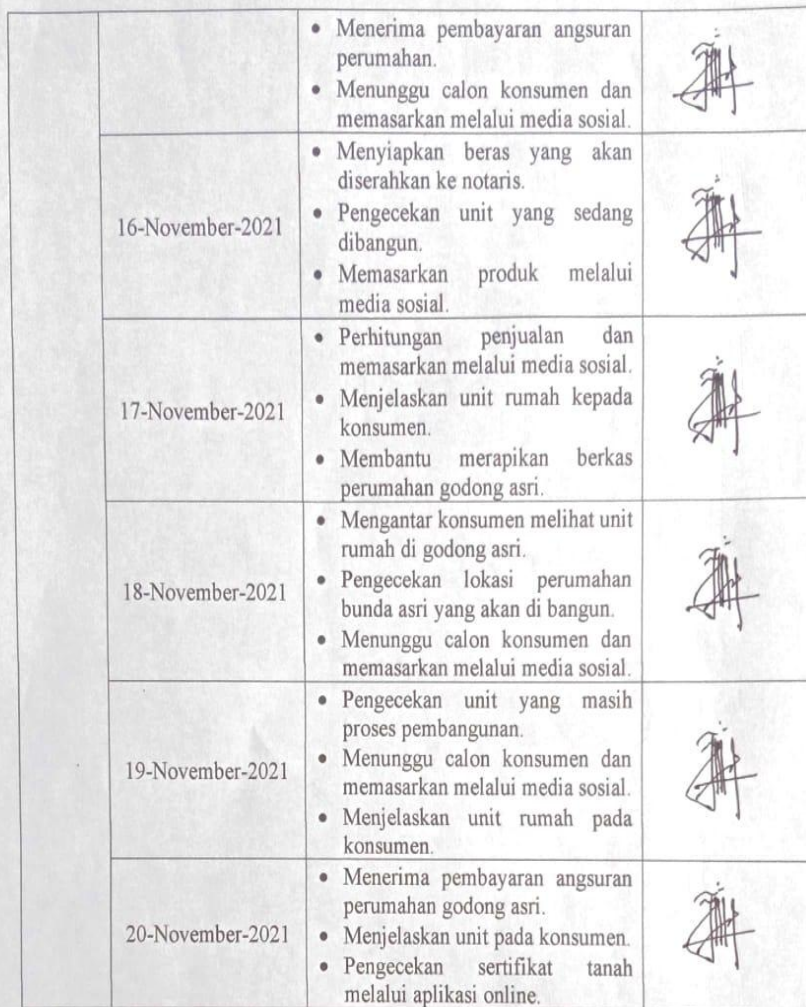 • Menerima pembayaran angsuran
perumahan.
• Menunggu calon konsumen dan
memasarkan melalui media sosial.
16-November-2021
• Menyiapkan beras yang akan
diserahkan ke notaris.
• Pengecekan unit yang sedang
dibangun.
• Memasarkan produk melalui
media sosial.
17-November-2021
• Perhitungan penjualan dan
memasarkan melalui media sosial.
• Menjelaskan unit rumah kepada
konsumen.
• Membantu merapikan berkas
perumahan godong asri.
18-November-2021
• Mengantar konsumen melihat unit
rumah di godong asri.
• Pengecekan lokasi perumahan
bunda asri yang akan di bangun.
• Menunggu calon konsumen dan
memasarkan melalui media sosial.
19-November-2021
• Pengecekan unit yang masih
proses pembangunan.
• Menunggu calon konsumen dan
memasarkan melalui media sosial.
• Menjelaskan unit rumah pada
konsumen.
20-November-2021
• Menerima pembayaran angsuran
perumahan godong asri.
• Menjelaskan unit pada konsumen.
• Pengecekan sertifikat tanah
melalui aplikasi online.